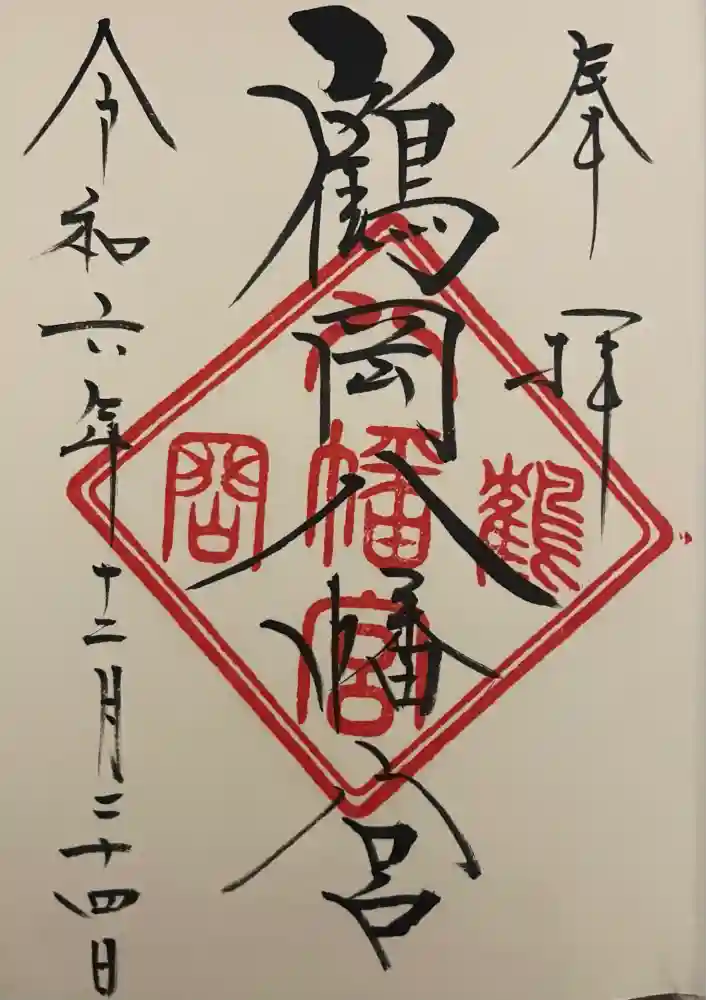 奉拝
鶴岡八幡宮
令和六年十二月二十四日
鶴岡八幡宮